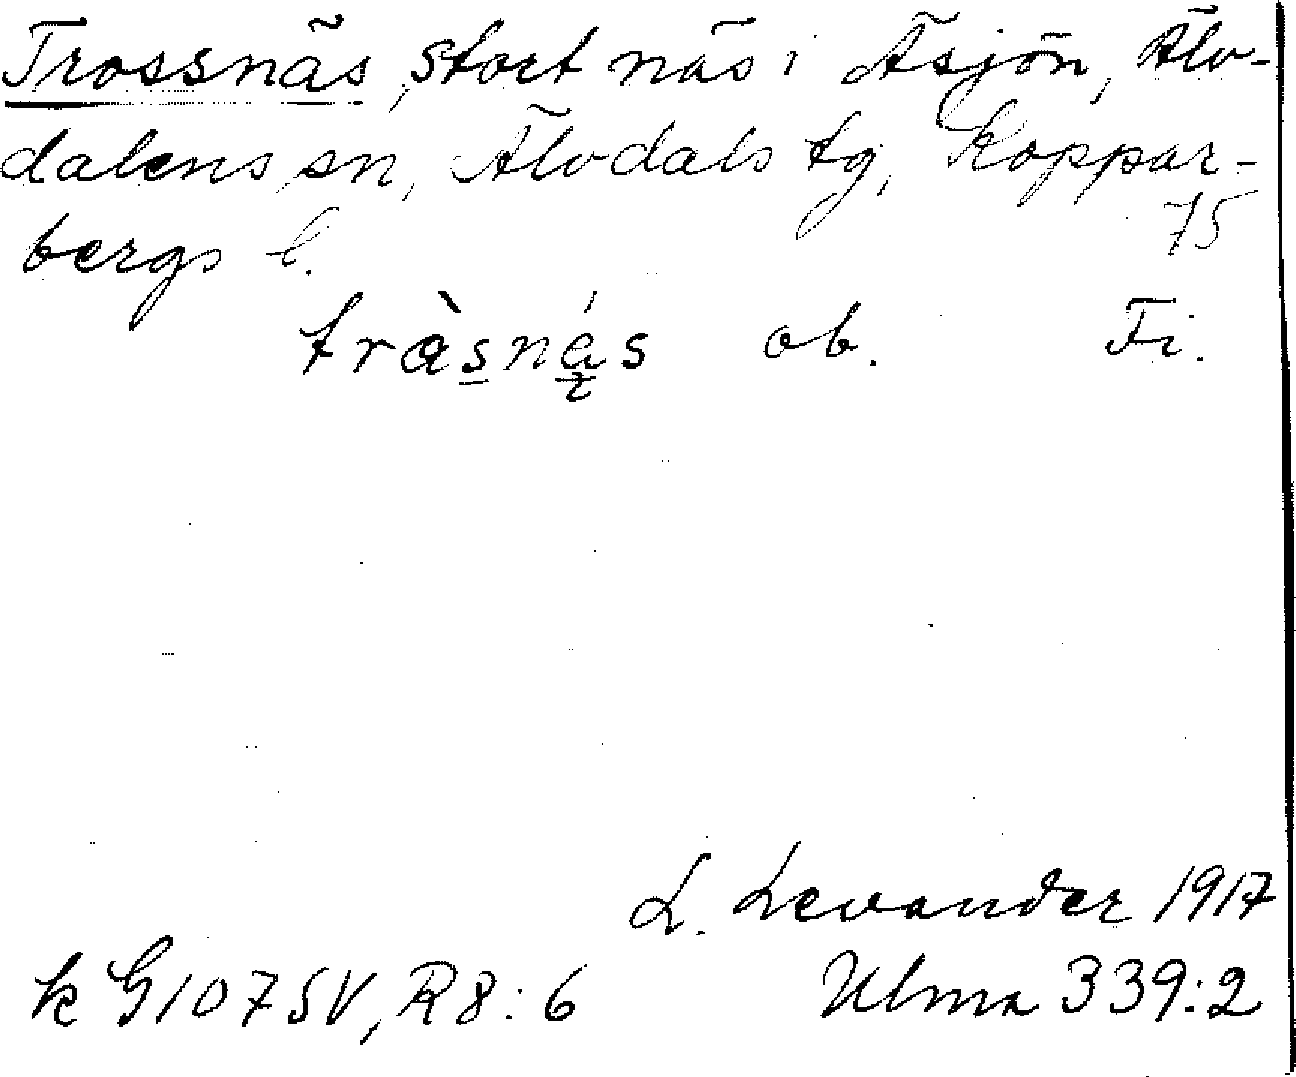 Trossnäs, stort näs i Äsjön, Älv-
dalens sn, Älvdals tg, Koppar-
bergs l. 75
tràsnás ob. Fi.
L. Levander 1917
k G1075V, R8:6 Ulma 339:2